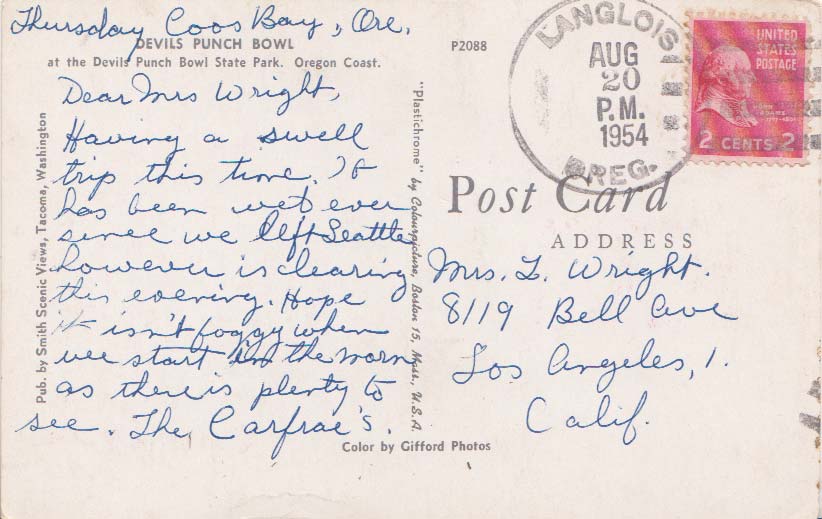 Thursday Coos Bay, Ore.
DEVILS PUNCH BOWL
at the Devils Punch Bowl State Park. Oregon Coast.
Dear Mrs Wright,
Having a swell
trip this time. It
has been wet ever
since we left Seattle
however is clearing
this evening. Hope
it isn't foggy when
we start in the morn
as there is plenty to
see. The Carfrae's.
Pub. by Smith Scenic Views, Tacoma, Washington
"Plastichrome" by Colourpicture, Boston 15, Mass., U.S.A.
Color by Gifford Photos
P2088
LANGLOIS
AUG
20
P.M.
1954
OREG.
UNITED
STATES
POSTAGE
JOHN
ADAMS
1797-1801
2 CENTS 2
Post Card
ADDRESS
Mrs. L. Wright.
8119 Bell Ave
Los Angeles, 1.
Calif.